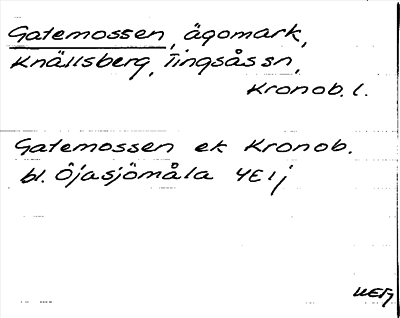 Gatemossen, ägomark,
Knällsberg, Tingsås sn,
Kronob. l.
Gatemossen ek Kronob.
bl. Öjasjömåla 4E1j